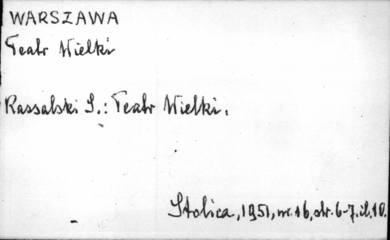 WARSZAWA
Teatr Wielki
Rassalski S.: Teatr Wielki.
Stolica, 1951, nr. 16, str. 6-7, il. 10.